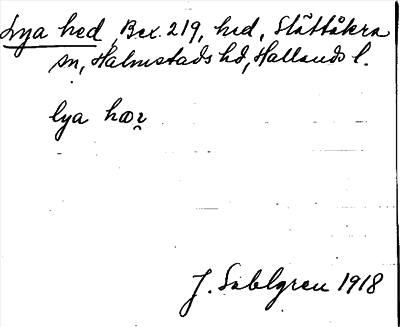 Lya hed, Bex. 219, hed, Slättåkra
sn, Halmstads hd, Hallands l.
lya hær
J. Sahlgren 1918